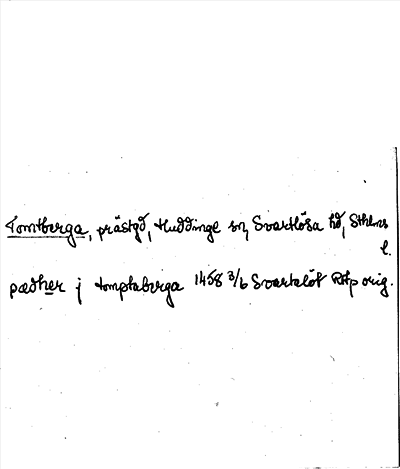 Tomtberga, prästgd, Huddinge sn, Svartlösa hd, Sthlms
l.
pædher j tomptaberga 1458 3/6 Svartalöt RAp orig.